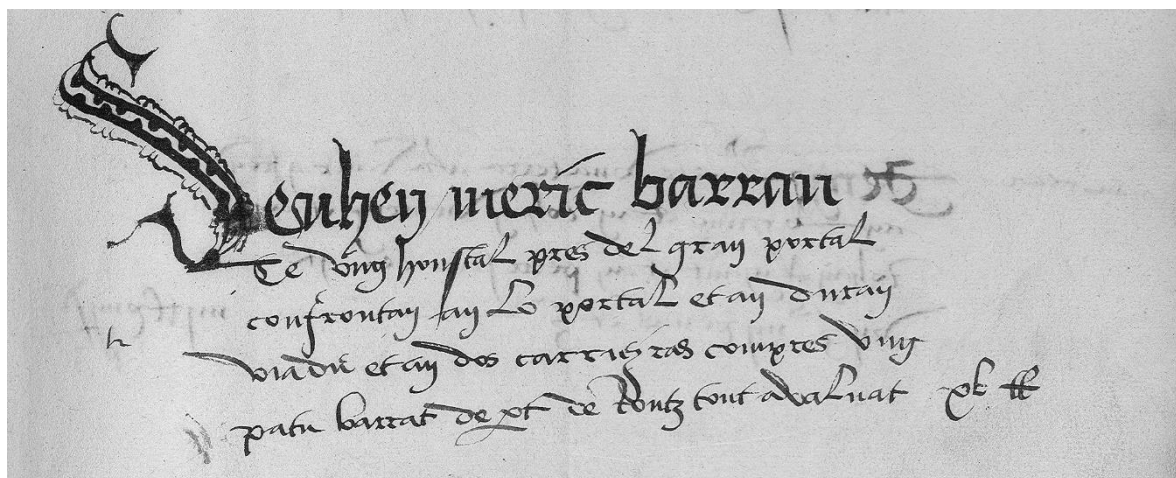 Senhen meric barran
Te vung honstal pres del gran portal
confrontan an lo portal et an duran
viadu et an dos carrieiras compres vung
patu barrat de part de Rontz tout avaluat xl ll